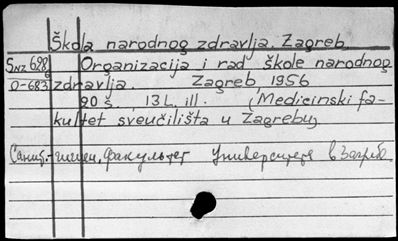 Škola narodnog zdravlja. Zagreb
Snz 698 Organizacija i rad škole narodnog
0-683 zdravlja. Zagreb, 1956
90 š., 13 L. ill. (Medicinski fa-
kultet sveučilišta u Zagrebu)
Санит.-гигиен. факультет Университета в Загребе